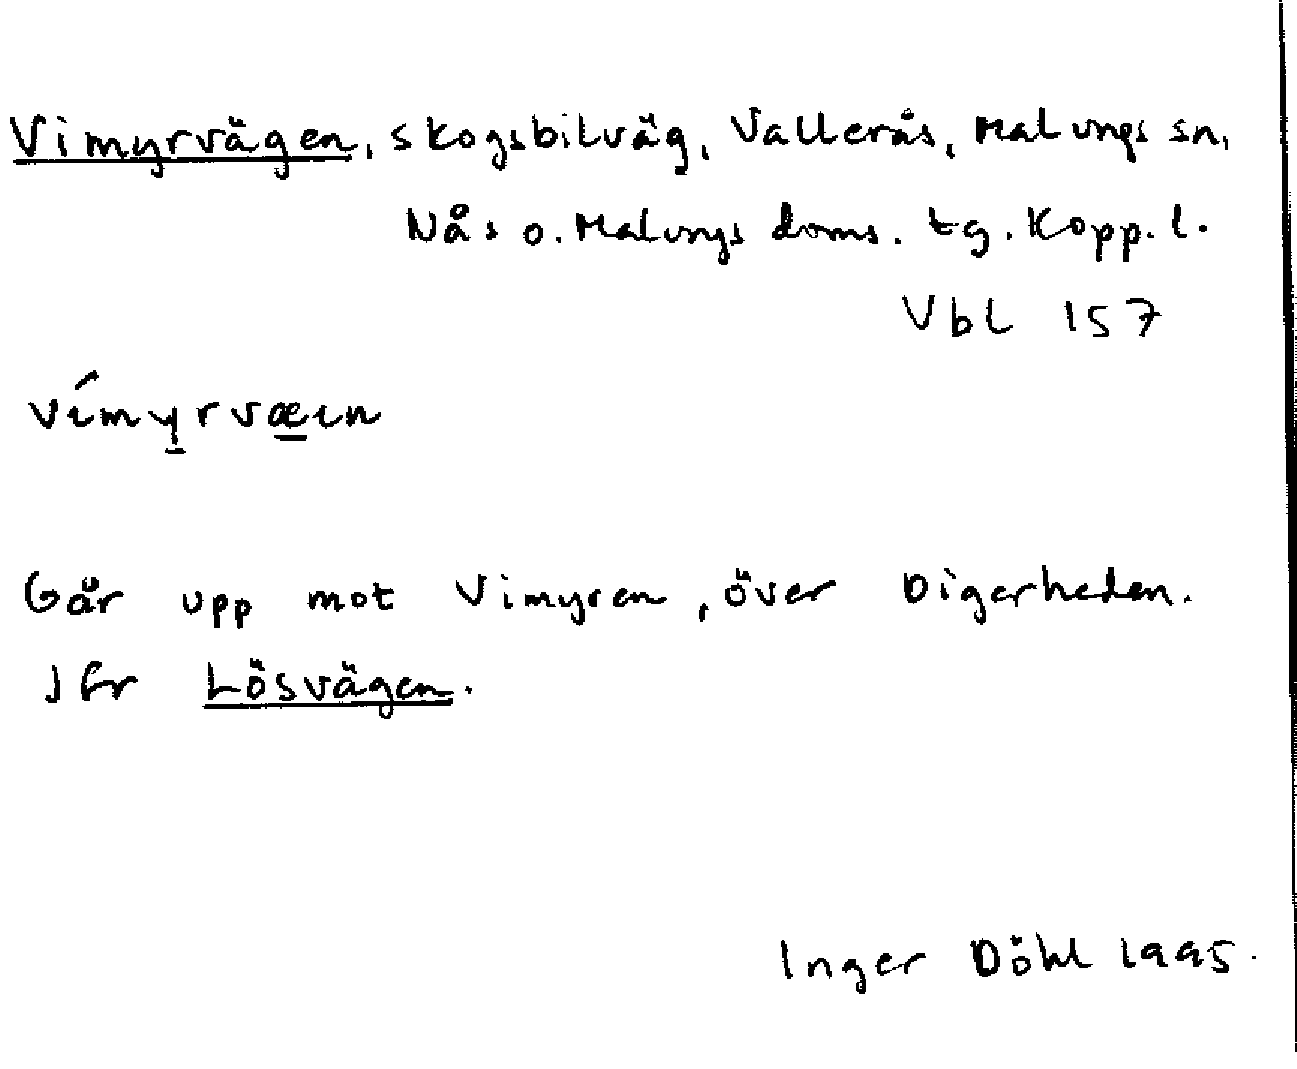 Vimyrvägen, skogsbilväg, Vallerås, Malungs sn,
Nås o. Malungs doms. tg. Kopp. l.
Vbl 157
vímyrvæın
Går upp mot Vimyren, över Digerheden.
Jfr Lösvägen.
Inger Döhl 1995.